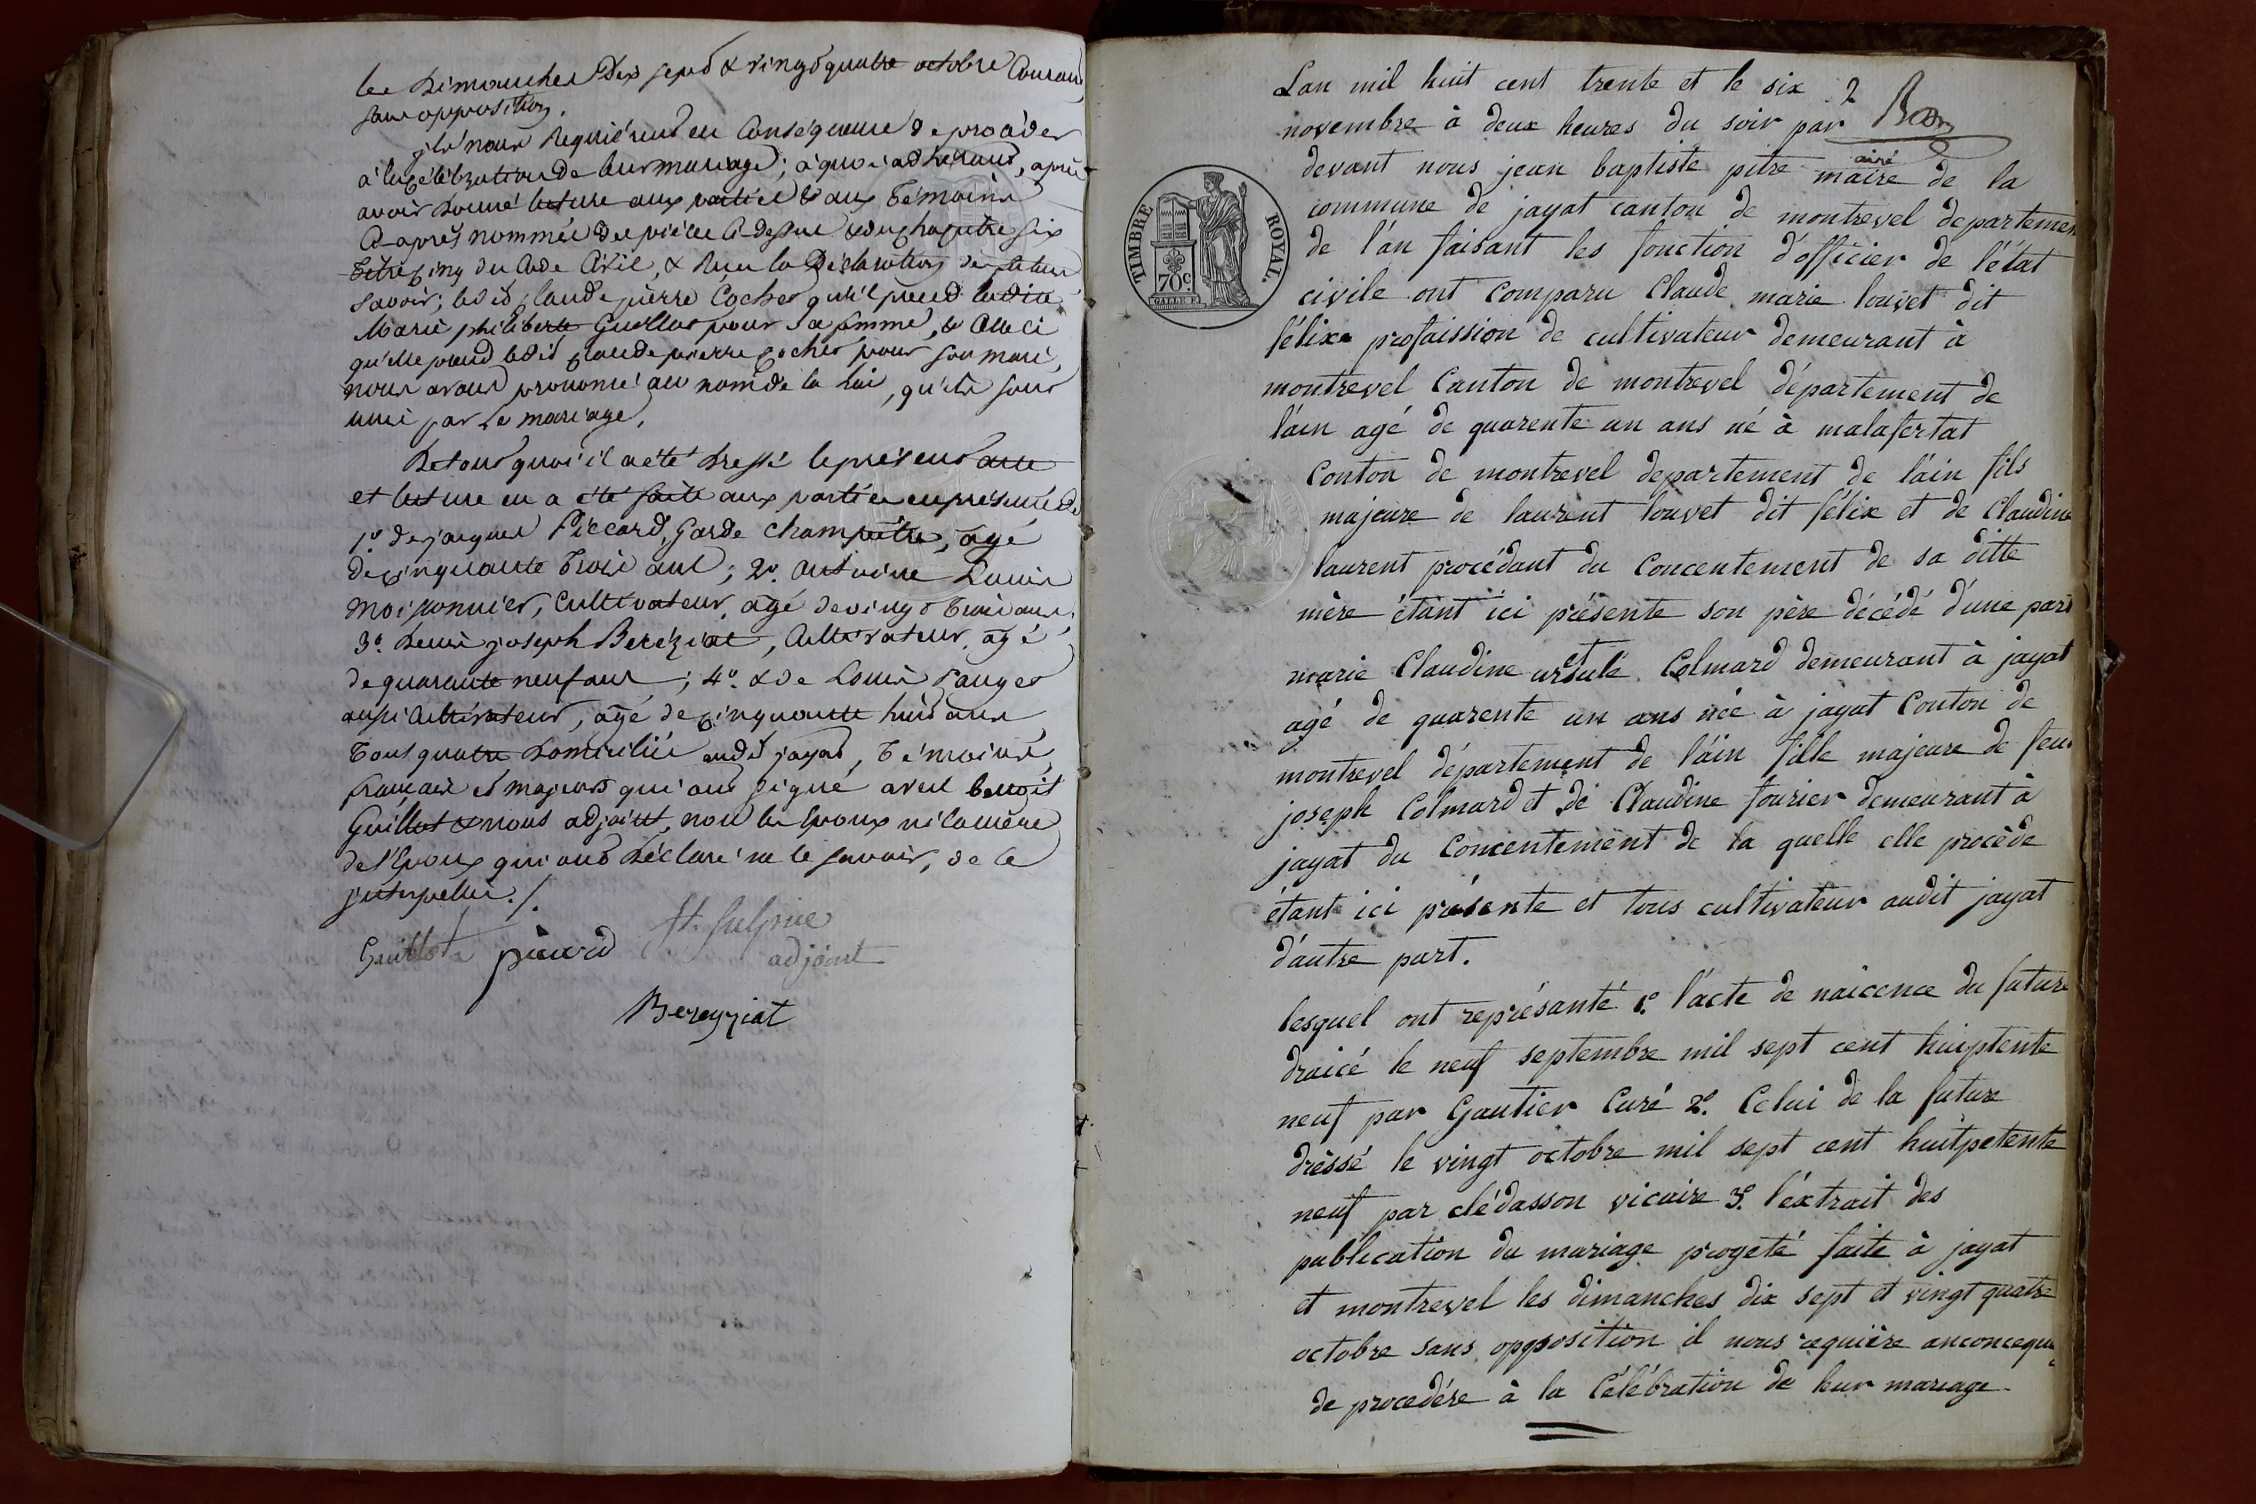 les Dimanches Dix sept & vingt quatre octobre Courant
sans opposition.
ils nous Requierent en Conséquence de procéder
à la Célébration de leur mariage; à quoi adhérant, après
avoir donné lecture aux parties & aux Témoins
Ci-après nommés des pièces Ci-dessus & du chapitre six
Titre Cinq du Code Civil, & Reçu la Déclaration des futurs
Savoir; ledit Claude pierre Cocher qu'il prend ladite
Marie philiberte Guillot pour Sa femme, & Celle ci
qu'elle prend ledit Claude pierre Cocher pour son mari,
nous avons prononcé au nom de la loi, qu'ils sont
unis par le mariage.
De tout quoi il a été dressé le présent acte
et lecture en a été faite aux parties en présence de
1º. de jacques Piccard, Garde Champêtre, âgé
de Cinquante Trois ans; 2º. antoine Louis
moissonnier, Cultivateur, âgé de vingt Trois ans.
3º. Denis joseph Bereziat, Cultivateur, âgé
de quarante neuf ans; 4º. & de Louis
aussi Cultivateur, âgé de Cinquante huit ans
Tous quatre Domiciliés audit jayat, Témoins
français et majeurs qui ont signé avec benoit
Guillot & nous adjoint, non les Epoux ni la mère
de l'Epoux qui ont Déclaré ne le savoir, de ce
interpellés ./.
Guillot picard St. Sulpice
adjoint
Bereyziat
Lan mil huit cent trente et le six 2
novembre à deux heures du soir par
devant nous jean baptiste pitre maire de la
commune de jayat canton de montrevel departemen
de l'ân faisant les fonction d'officier de l'état
civile ont comparu Claude marie louvet dit
félix profaission de cultivateur demeurant à
montrevel Canton de montrevel département de
l'áin agé de quarente un ans né à malafertat
Conton de montrevel departement de láin fils
majeure de laurent louvet dit félix et de Claudine
laurent procédant du Concentement de sa ditte
mère étant ici présente son père décédé d'une part
et
marie Claudine ursule Colmard demeurant à jayat
agé de quarente un ans née à jayat Conton de
montrevel département de láin fille majeure de feu
joseph Colmard et de Claudine fourier demeurant à
jayat du Concentement de la quelle elle procède
étant ici présente et tous cultivateur audit jayat
d'autre part.
lesquel ont représanté 1º. l'acte de naicence du future
draicé le neuf septembre mil sept cent huiptente
neuf par Gautier Curé 2º. Celui de la future
drèssé le vingt octobre mil sept cent huitpetente
neuf par clédasson vicaire 3º. l'éxtrait des
publication du mariage progeté faite à jayat
et montrevel les dimanches dix sept et vingt quatre
octobre sans opposition il nous requière anconcequ
de procedére à la Célébration de leur mariage.
TIMBRE ROYAL
70 c